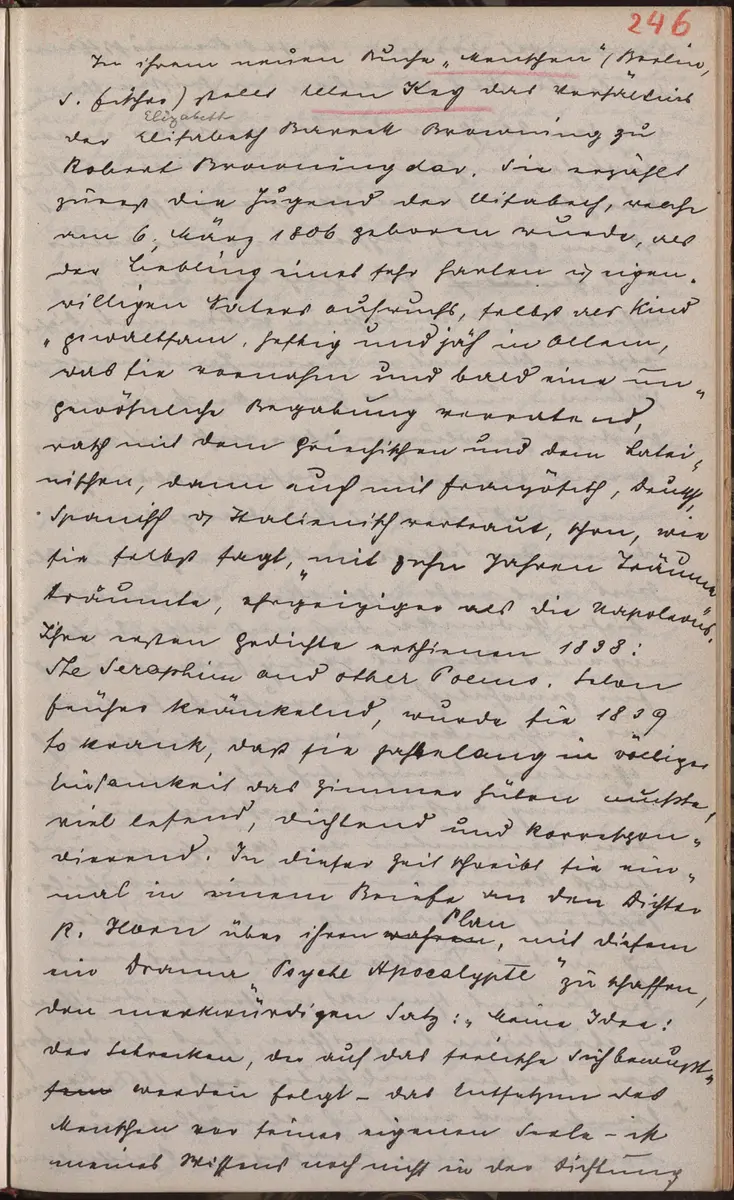 246
In ihrem neuen Buche „Menschen“ (Berlin,
S. Fischer) stellt Ellen Key das Verhältnis
Elizabeth
der Elisabeth Barrett Browning zu
Robert Browning dar. Sie erzählt
zuerst die Jugend der Elisabeth, welche
am 6. März 1806 geboren wurde, als
der Liebling eines sehr harten u eigen-
willigen Vaters aufwuchs, selbst als Kind
„gewaltsam, heftig und jäh in Allem,
was sie vornahm“ und bald eine un-
gewöhnliche Begabung verratend,
rasch mit dem Griechischen und dem Latei-
nischen, dann auch mit Französisch, Deutsch,
Spanisch u Italienisch vertraut, schon, wie
sie selbst sagt, „mit zehn Jahren Träume
träumte, ehrgeiziger als die Napoleons.
Ihre ersten Gedichte erschienen 1838:
The Seraphim and other Poems. Schon
früher kränkelnd, wurde sie 1839
so krank, daß sie jahrelang in völliger
Einsamkeit das Zimmer hüten mußte,
viel lesend, dichtend und korrespon-
dierend. In dieser Zeit schreibt sie ein-
mal in einem Briefe an den Dichter
Plan
R. Horn über ihren wahren, mit diesem
ein Drama „Psyche Apocalypte“ zu schaffen,
den merkwürdigen Satz: „Meine Idee:
der Schrecken, der auf das seelische Sichbewußt-
sein werden folgt – das Entsetzen des
Menschen vor seiner eigenen Seele – ist
meines Wissens noch nicht in der Dichtung